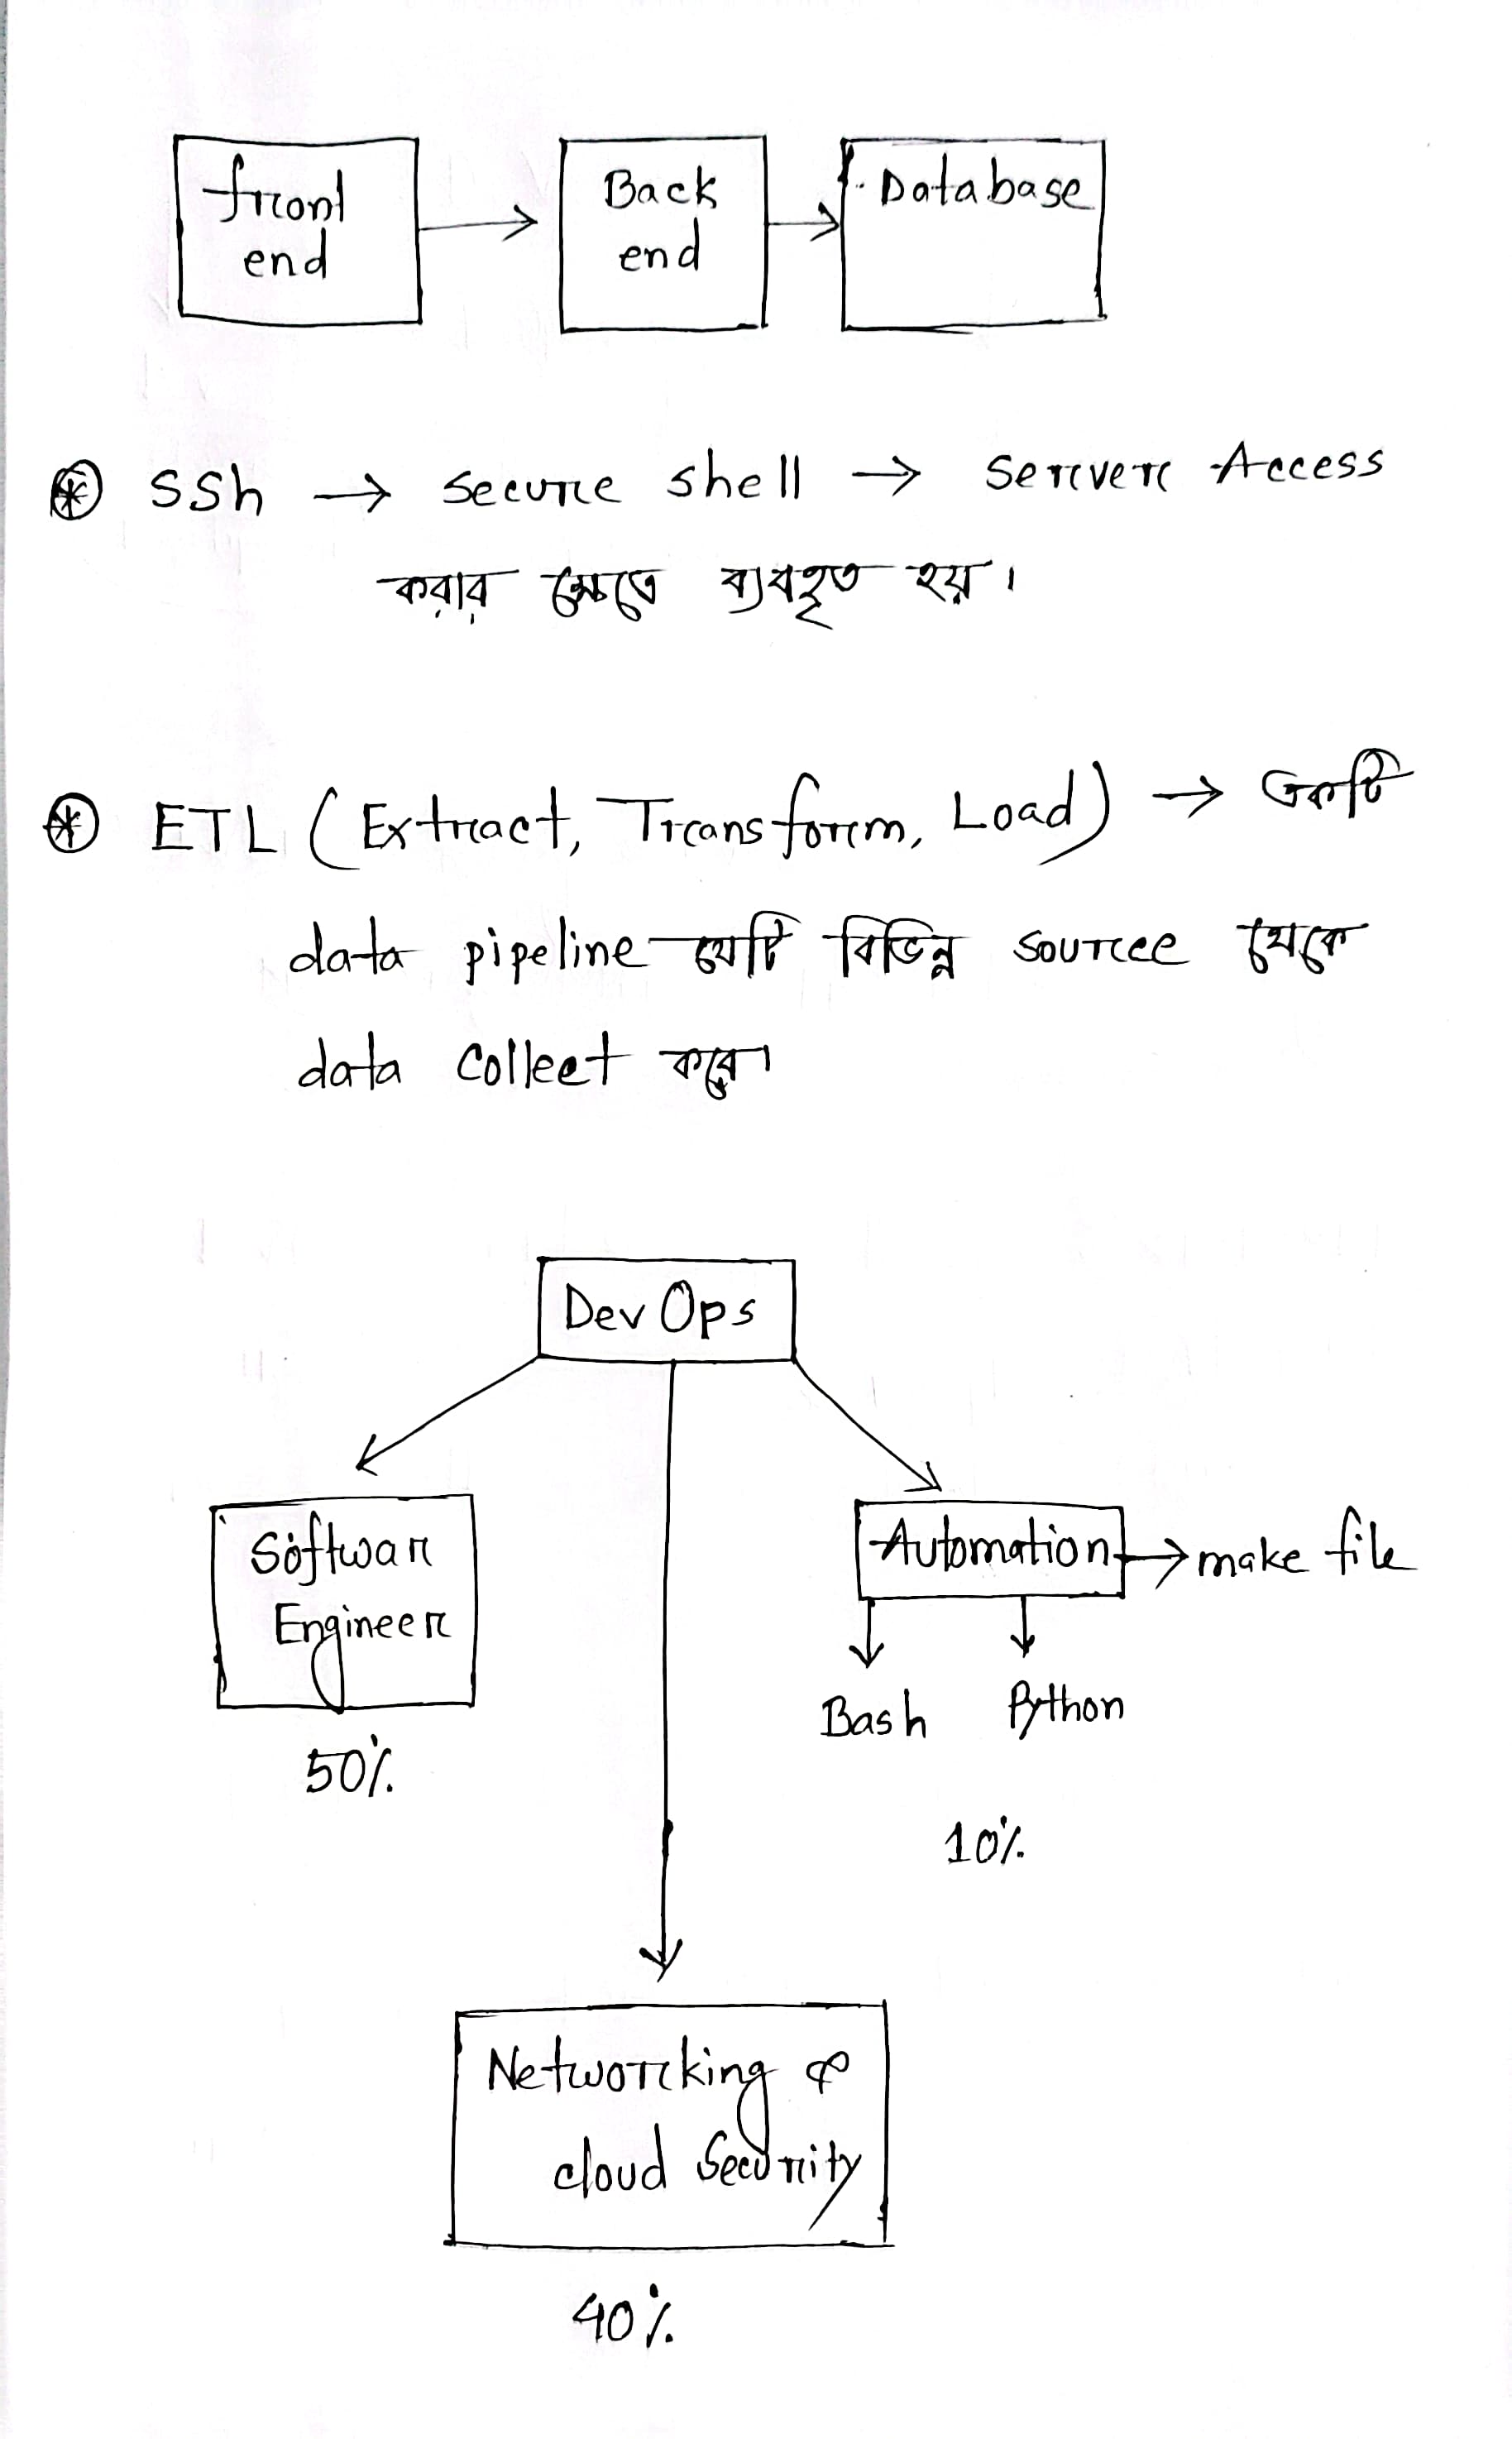 front
end
Back
end
Database
SSh → secure shell → Server Access
করার ক্ষেত্রে ব্যবহৃত হয়।
ETL (Extract, Transform, Load) → একটি
data pipeline যেটি বিভিন্ন source থেকে
data collect করে।
Dev Ops
Softwar
Engineer
50%
Automation → make file
Bash Python
10%
Networking &
cloud Security
40%